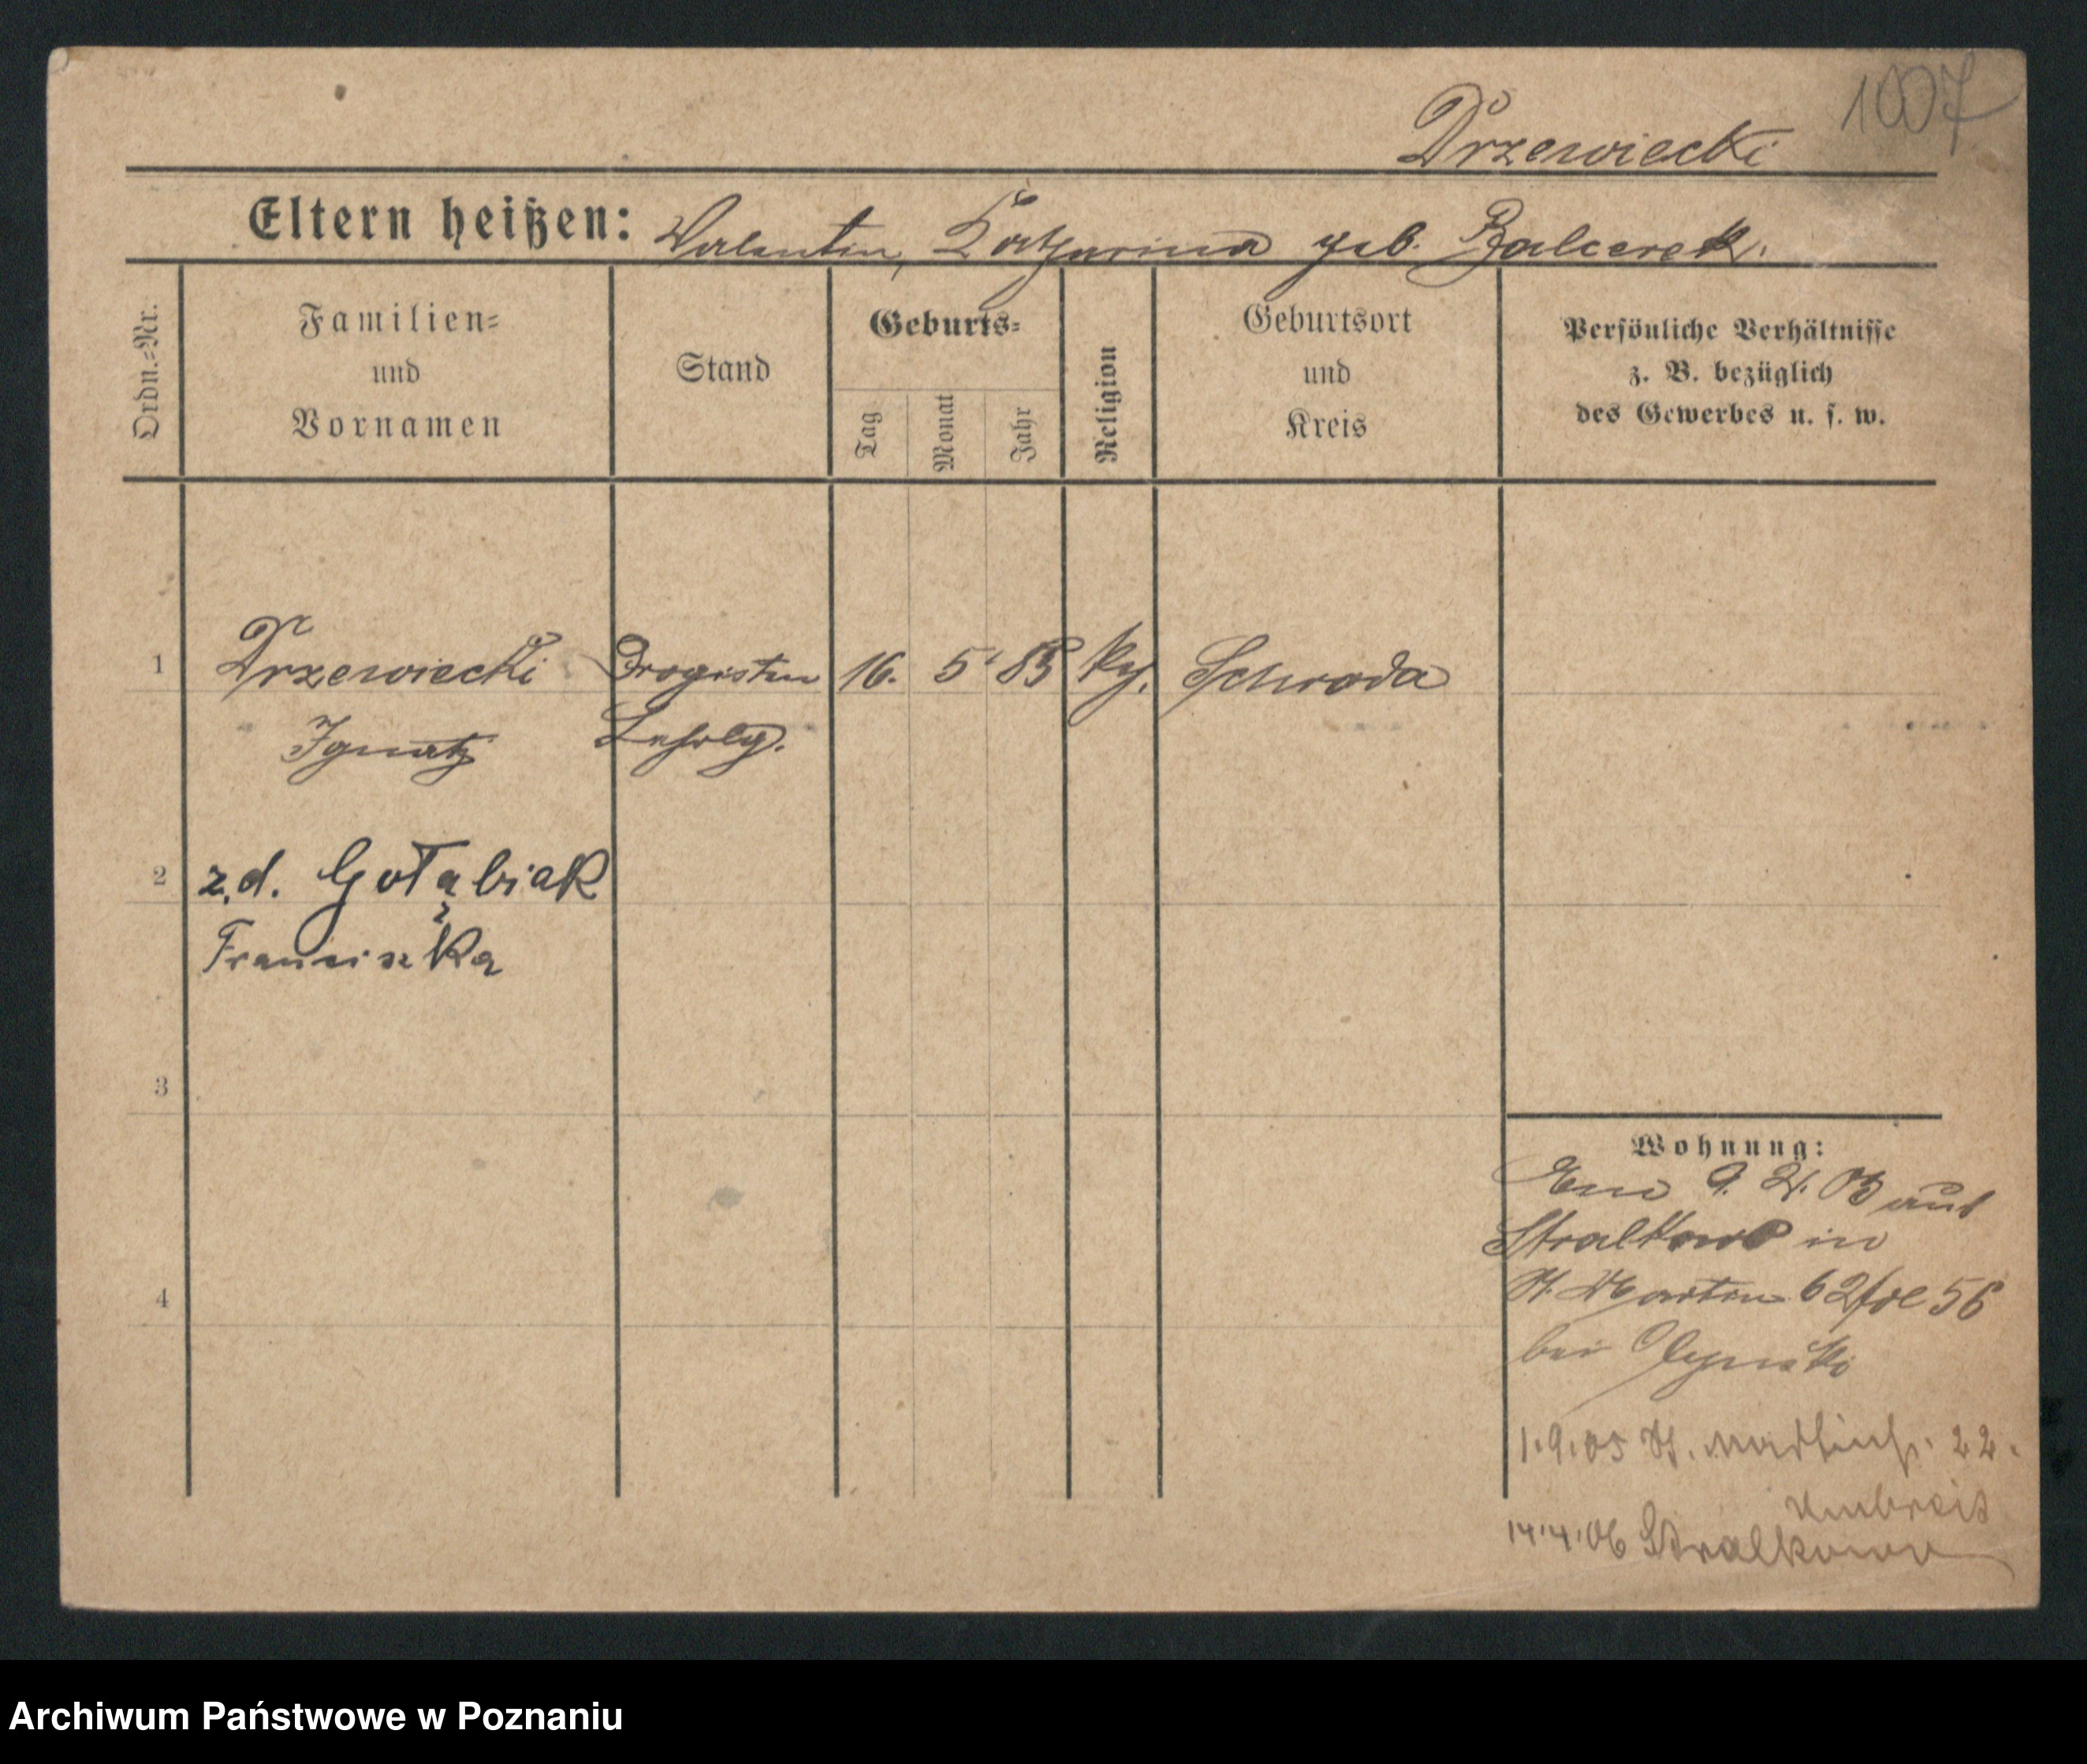 1007
Drzewiecki
Eltern heißen: Valentin, Katharina geb. Balcerek.
Ordn.=Nr.
Familien=
und
Vornamen
Stand
Geburts=
Tag
Monat
Jahr
Religion
Geburtsort
und
Kreis
Persönliche Verhältnisse
z. B. bezüglich
des Gewerbes u. s. w.
1 Drzewiecki Drogisten 16. 5 Schroda
Ignatz Lehrlg.
2 z.d. Gołąbiak
Franciszka
3
4
Wohnung:
aus
Stralkowo in
St. Martin 62 56
bei
1.9.05 St. 22.
Umbreit
14.4.06 Stralkowo
Archiwum Państwowe w Poznaniu